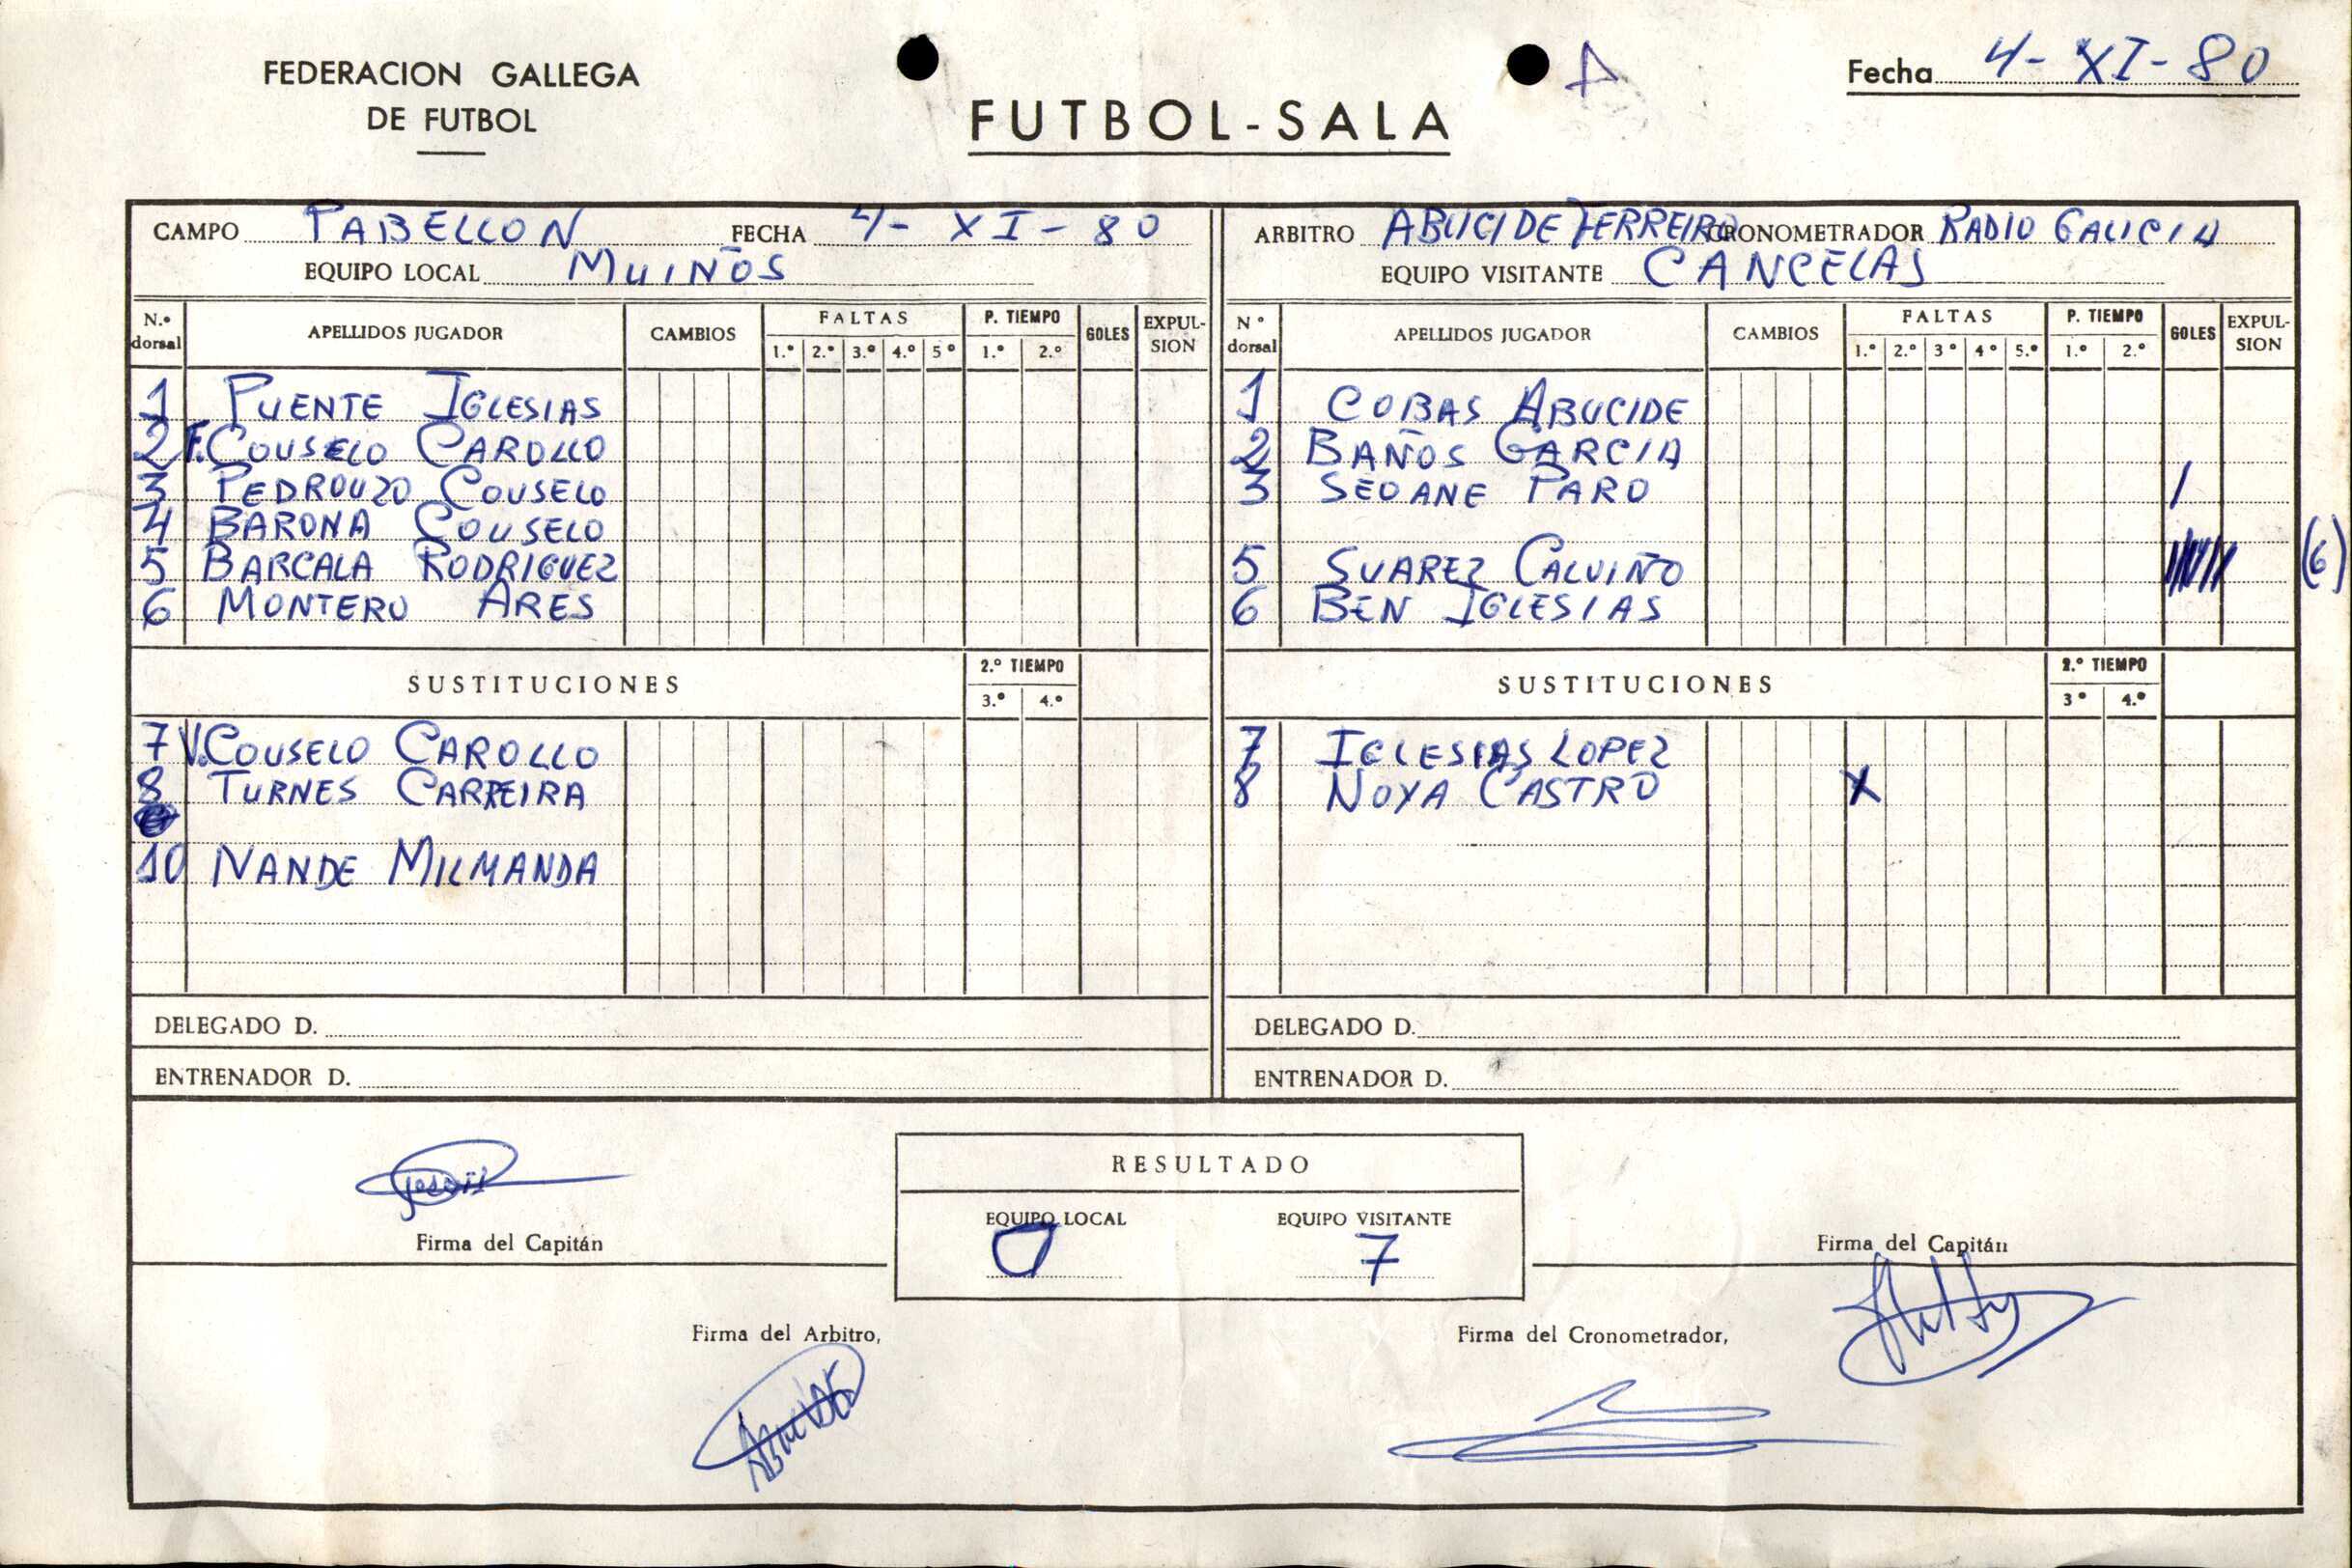 FEDERACION GALLEGA
DE FUTBOL
FUTBOL-SALA
Fecha 4-XI-80
CAMPO PABELLON FECHA 4-XI-80
EQUIPO LOCAL MUIÑOS
N.º dorsal APELLIDOS JUGADOR CAMBIOS FALTAS 1.º 2.º 3.º 4.º 5º P. TIEMPO 1.º 2.º GOLES EXPUL-SION
1 PUENTE IGLESIAS
2 F. COUSELO CAROLLO
3 PEDROUZO COUSELO
4 BARONA COUSELO
5 BARCALA RODRIGUEZ
6 MONTERO ARES
SUSTITUCIONES 2.º TIEMPO 3.º 4.º
7 V. COUSELO CAROLLO
8 TURNES CARREIRA
10 NANDE MILMANDA
DELEGADO D.
ENTRENADOR D.
ARBITRO ABUCIDE FERREIRO CRONOMETRADOR RADIO GALICIA
EQUIPO VISITANTE CANCELAS
Nº dorsal APELLIDOS JUGADOR CAMBIOS FALTAS 1.º 2.º 3º 4º 5.º P. TIEMPO 1.º 2.º GOLES EXPUL-SION
1 COBAS ABUCIDE
2 BAÑOS GARCIA
3 SEOANE PARO /
5 SUAREZ CALVIÑO (6)
6 BEN IGLESIAS
SUSTITUCIONES 2.º TIEMPO 3º 4.º
7 IGLESIAS LOPEZ
8 NOYA CASTRO X
DELEGADO D.
ENTRENADOR D.
Firma del Capitán
RESULTADO
EQUIPO LOCAL EQUIPO VISITANTE
0 7
Firma del Capitán
Firma del Arbitro,
Firma del Cronometrador,